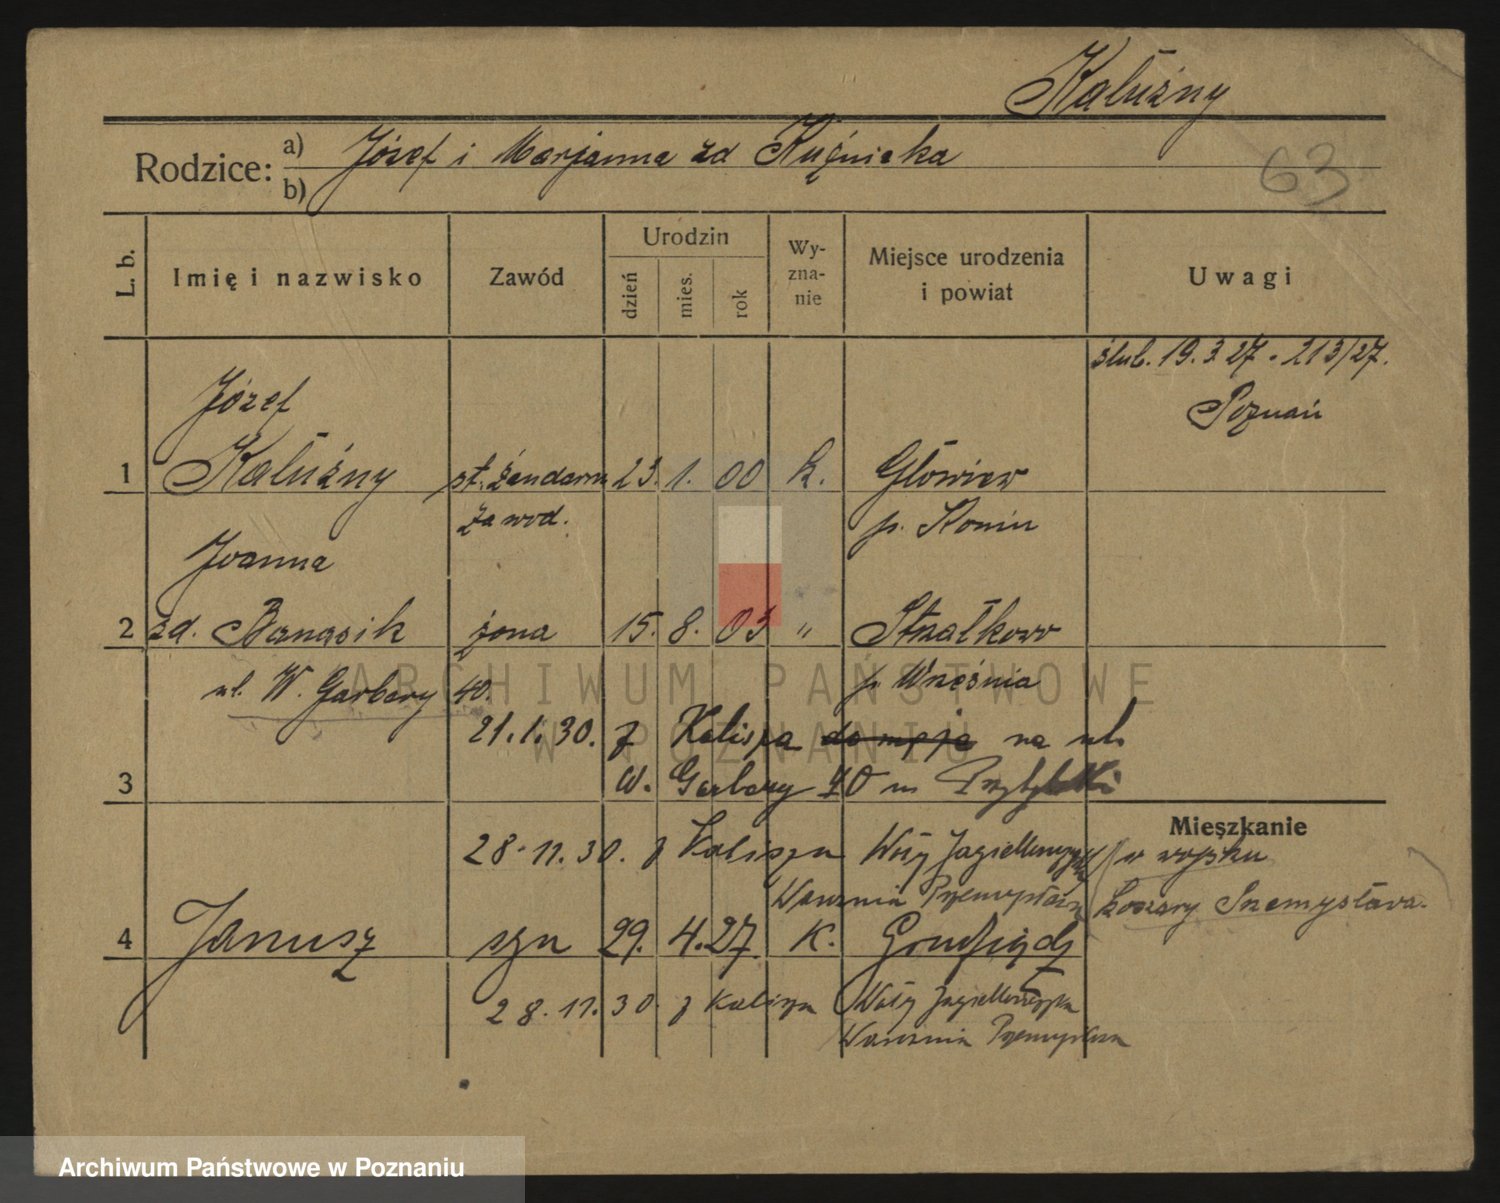 Kałużny
Rodzice: a) Józef i Marjanna zd Kuźnicka
b)
63
L. b.
Imię i nazwisko
Zawód
Urodzin
dzień
mies.
rok
Wy-
zna-
nie
Miejsce urodzenia
i powiat
Uwagi
ślub. 19.3.27 . 213/27.
Poznań
Józef
1 Kałużny st. żandarm 23. 1. 00 k. Głowiew
zawod. p. Konin
Joanna
2 zd. Banasik żona 15. 8. 03 " Strzałkowo
ul. W. Garbary 40. p. Września
21.1.30. z Kalisza na ul.
3 W. Garbary 40 m
Mieszkanie
28.11.30. z Kalisza Wały Jagiellońskie w wojsku
Koszary Przemysława.
4 Janusz syn 29. 4. 27. K. Grudziądz
28.11.30. z Kalisza Wały
ARCHIWUM PAŃSTWOWE
W POZNANIU
Archiwum Państwowe w Poznaniu